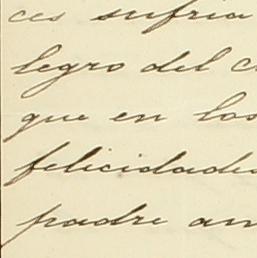 ces sufria
legro del
que en los
felicidades
padre am